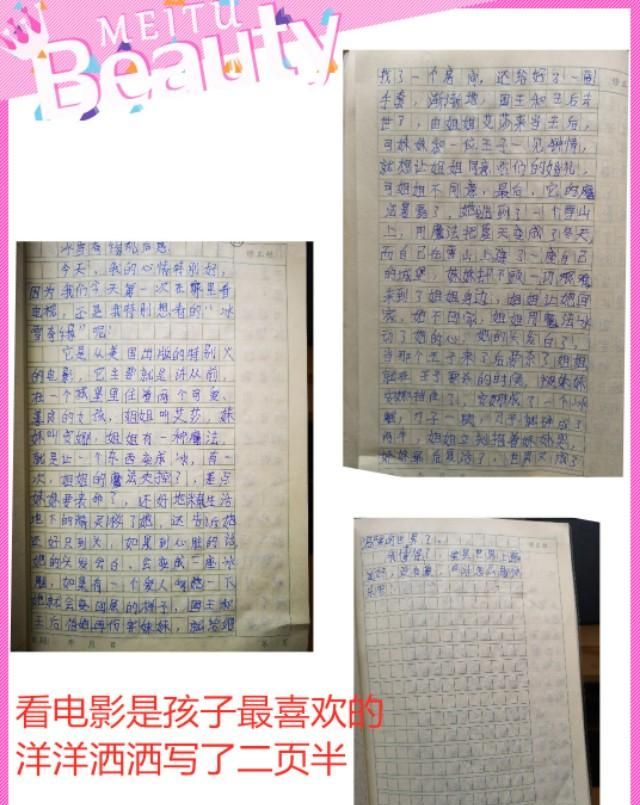 MEITU
Beauty
冰雪奇缘观后感
今天,我的心情特别好,
因为我们今天第一次在
电视,还是我特别想看的“冰
雪奇缘”呢!
它是从美国出版的特别火
的电影,它主要就是讲从前,
在一个城堡里住着两个可爱、
善良的女孩,姐姐叫艾莎,妹
妹叫安娜,姐姐有一种魔法,
就是让一个东西变成冰,有一
次,姐姐的魔法失控了,差点
妹妹要丧命了,还好地 生活
地下的精灵救了她,还告诉她
还好只到头,如果到心脏的话
她的头发会白,会变成一座冰
雕,如果有一个爱人 她一下
她就会变回原的样子,国王和
王后怕她再伤害妹妹,就给她
我了一个房间,还给好了一副
手套,渐渐地,国王和王后去
世了,由姐姐艾莎来当王后,
可妹妹和一位王子一见钟情,
就想让姐姐同意 他们的婚礼,
可姐姐不同意,最后,它的魔
法暴露了,她跑到了一个雪山
上,用魔法把夏天变成了冬天,
而自己在雪山上建了一座自己
的城堡,妹妹却不顾一切艰难
来到了姐姐身边,姐姐让她回
家,她不回家,姐姐用魔法冰
动了她的心,她的头发白了,
当那个王子来了后 杀了姐姐
就在王子要杀的时候,被妹妹
安娜挡住了,安娜成了一个冰
雕,刀子一碰,刀子 成了
两半,姐姐立刻抱着妹妹哭,
妹妹最后复活了,世界又成了
温暖的世界了。
我懂得了,
看电影是孩子最喜欢的
洋洋洒洒写了二页半